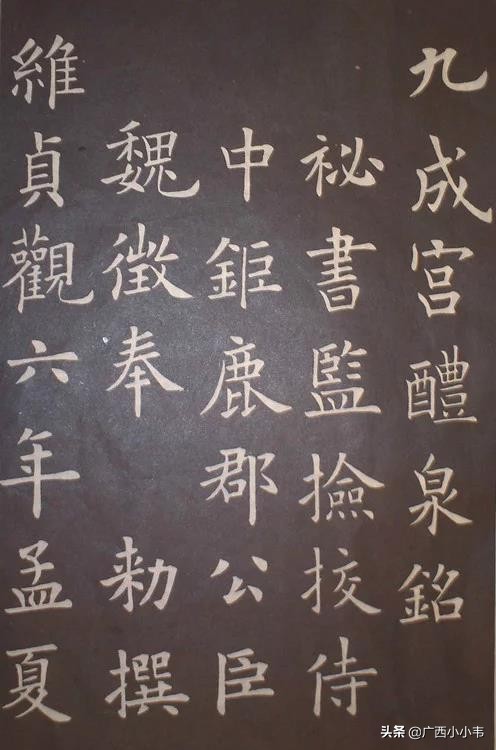 九成宮醴泉銘
祕書監撿挍侍
中鉅鹿郡公臣
魏徵奉 勑撰
維貞觀六年孟夏
头条 @广西小小韦